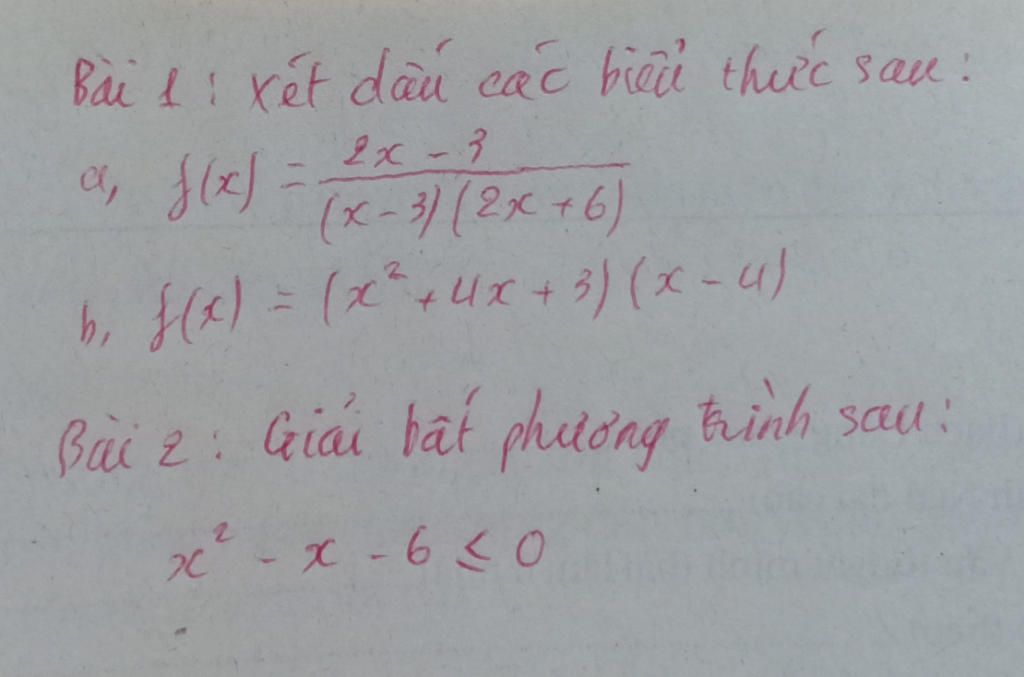 Bài 1: Xét dấu các biểu thức sau:
a, f(x) = (2x - 3)/((x - 3)(2x + 6))
b, f(x) = (x² + 4x + 3)(x - 4)
Bài 2: Giải bất phương trình sau:
x² - x - 6 ≤ 0